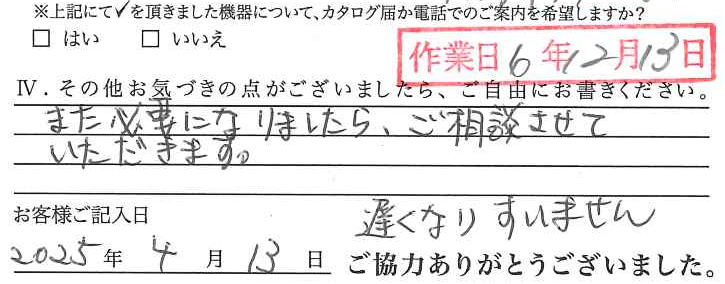 ※上記にて✓を頂きました機器について、カタログ届か電話でのご案内を希望しますか?
□ はい □ いいえ
作業日 6年12月13日
Ⅳ．その他お気づきの点がございましたら、ご自由にお書きください。
また必要になりましたら、ご相談させて
いただきます。
お客様ご記入日
遅くなりすいません
2025年 4月 13日
ご協力ありがとうございました。